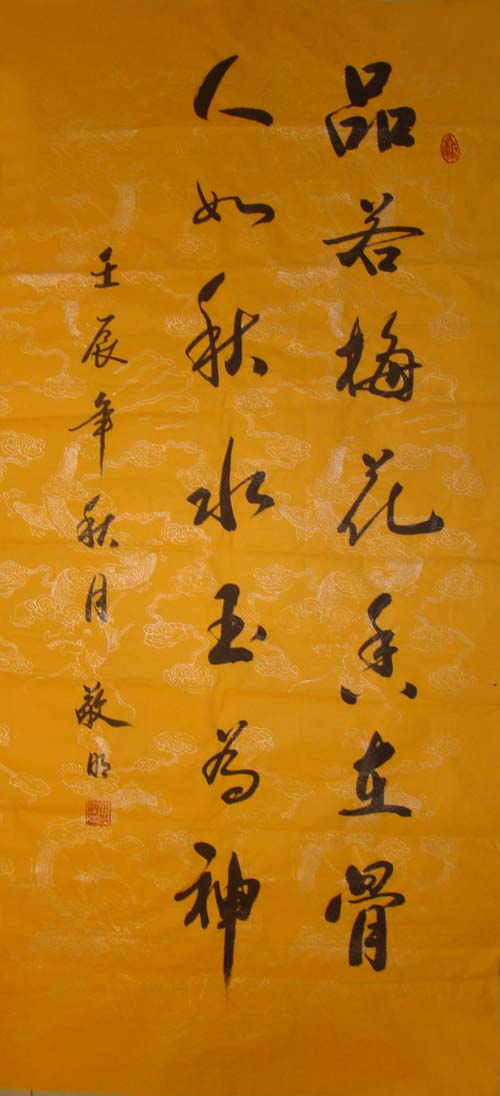 品若梅花香在骨
人如秋水玉为神
壬辰年秋月 敬明